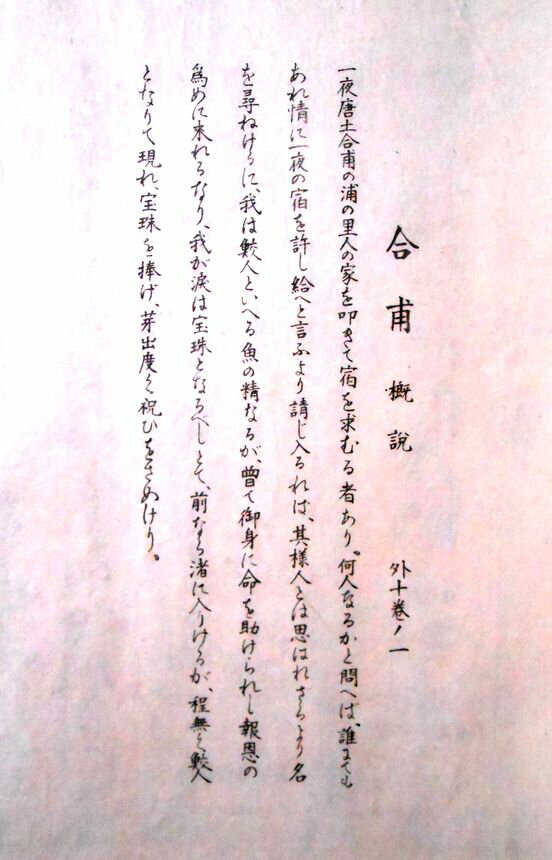 合甫概説　外十巻ノ一
一夜唐土合甫の浦の里人の家を叩きて宿を求むる者あり。何人なるかと問へば、誰にても
あれ情に一夜の宿を許し給へと言ふより請じ入るれは、其様人とは思はれさるより名
を尋ねけるに、我は鮫人といへる魚の精なるが、曽て御身に命を助けられし報恩の
為めに来れるなり、我が涙は宝珠となるべしとて、前なる渚に入りけるが、程無く鮫人
となりて現れ、宝珠を捧げ、芽出度く祝ひをさめけり。